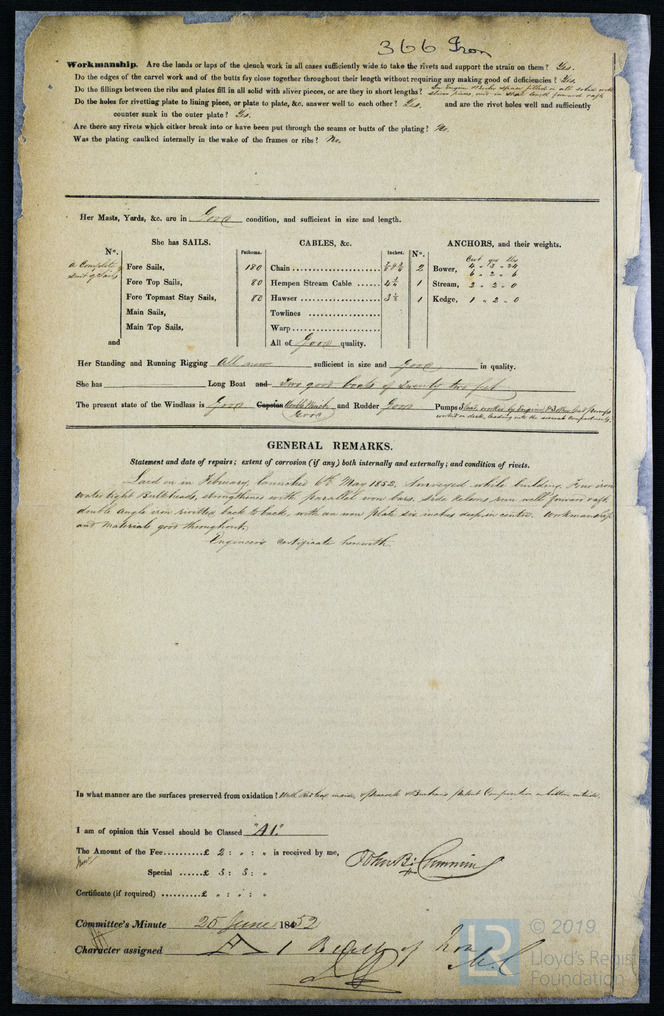 366 Iron
Workmanship. Are the lands or laps of the clench work in all cases sufficiently wide to take the rivets and support the strain on them? Yes.
Do the edges of the carvel work and of the butts fay close together throughout their length without requiring any making good of deficiencies? Yes.
Do the fillings between the ribs and plates fill in all solid with sliver pieces, or are they in short lengths?
Do the holes for rivetting plate to lining piece, or plate to plate, &c. answer well to each other? Yes and are the rivet holes well and sufficiently
counter sunk in the outer plate? Yes.
Are there any rivets which either break into or have been put through the seams or butts of the plating? No.
Was the plating caulked internally in the wake of the frames or ribs? No.
Her Masts, Yards, &c. are in Good condition, and sufficient in size and length.
She has SAILS. CABLES, &c. ANCHORS, and their weights.
N°. Fathoms. Inches. N°. Cwt qrs lbs
A Complete suit of Sails
Fore Sails, 180 Chain 2 Bower, 4 - 3 - 24
6 - 2 - 6
Fore Top Sails, 80 Hempen Stream Cable 1 Stream, 2 - 2 - 0
Fore Topmast Stay Sails, 80 Hawser 1 Kedge, 1 - 2 - 0
Main Sails, Towlines
Main Top Sails, Warp
and All of Good quality.
Her Standing and Running Rigging All new sufficient in size and Good in quality.
She has Long Boat and Two good boats of twenty two feet
The present state of the Windlass is Good Capstan Good and Rudder Good Pumps
GENERAL REMARKS.
Statement and date of repairs; extent of corrosion (if any) both internally and externally; and condition of rivets.
Laid on in February, launched 6th May 1852. Surveyed while building. iron
water tight Bulkheads, strengthened with parallel iron bars. Side Kelsons run well forward & aft,
double angle iron rivitted back to back, with an iron plate six inches deep in centre. Workmanship
and materials good throughout.
Engineers certificate herewith.
In what manner are the surfaces preserved from oxidation? Patent Composition outside.
I am of opinion this Vessel should be Classed "A1."
The Amount of the Fee £ 2 : " : " is received by me,
Special £ 5 : 5 : "
Certificate (if required) £ " : " : "
Committee's Minute 25 June 1852
Character assigned A 1 Built of Iron
LR
© 2019
Lloyd's Register
Foundation